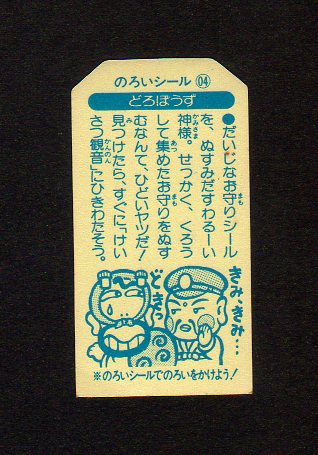 のろいシール 04
どろぼうず
●だいじなお守りシール
を、ぬすみだすわるーい
神様。せっかく、くろう
して集めたお守りをぬす
むなんて、ひどいヤツだ!
見つけたら、すぐに「けい
さつ観音」にひきわたそう。
きみ、きみ…
どきっ
※のろいシールでのろいをかけよう!